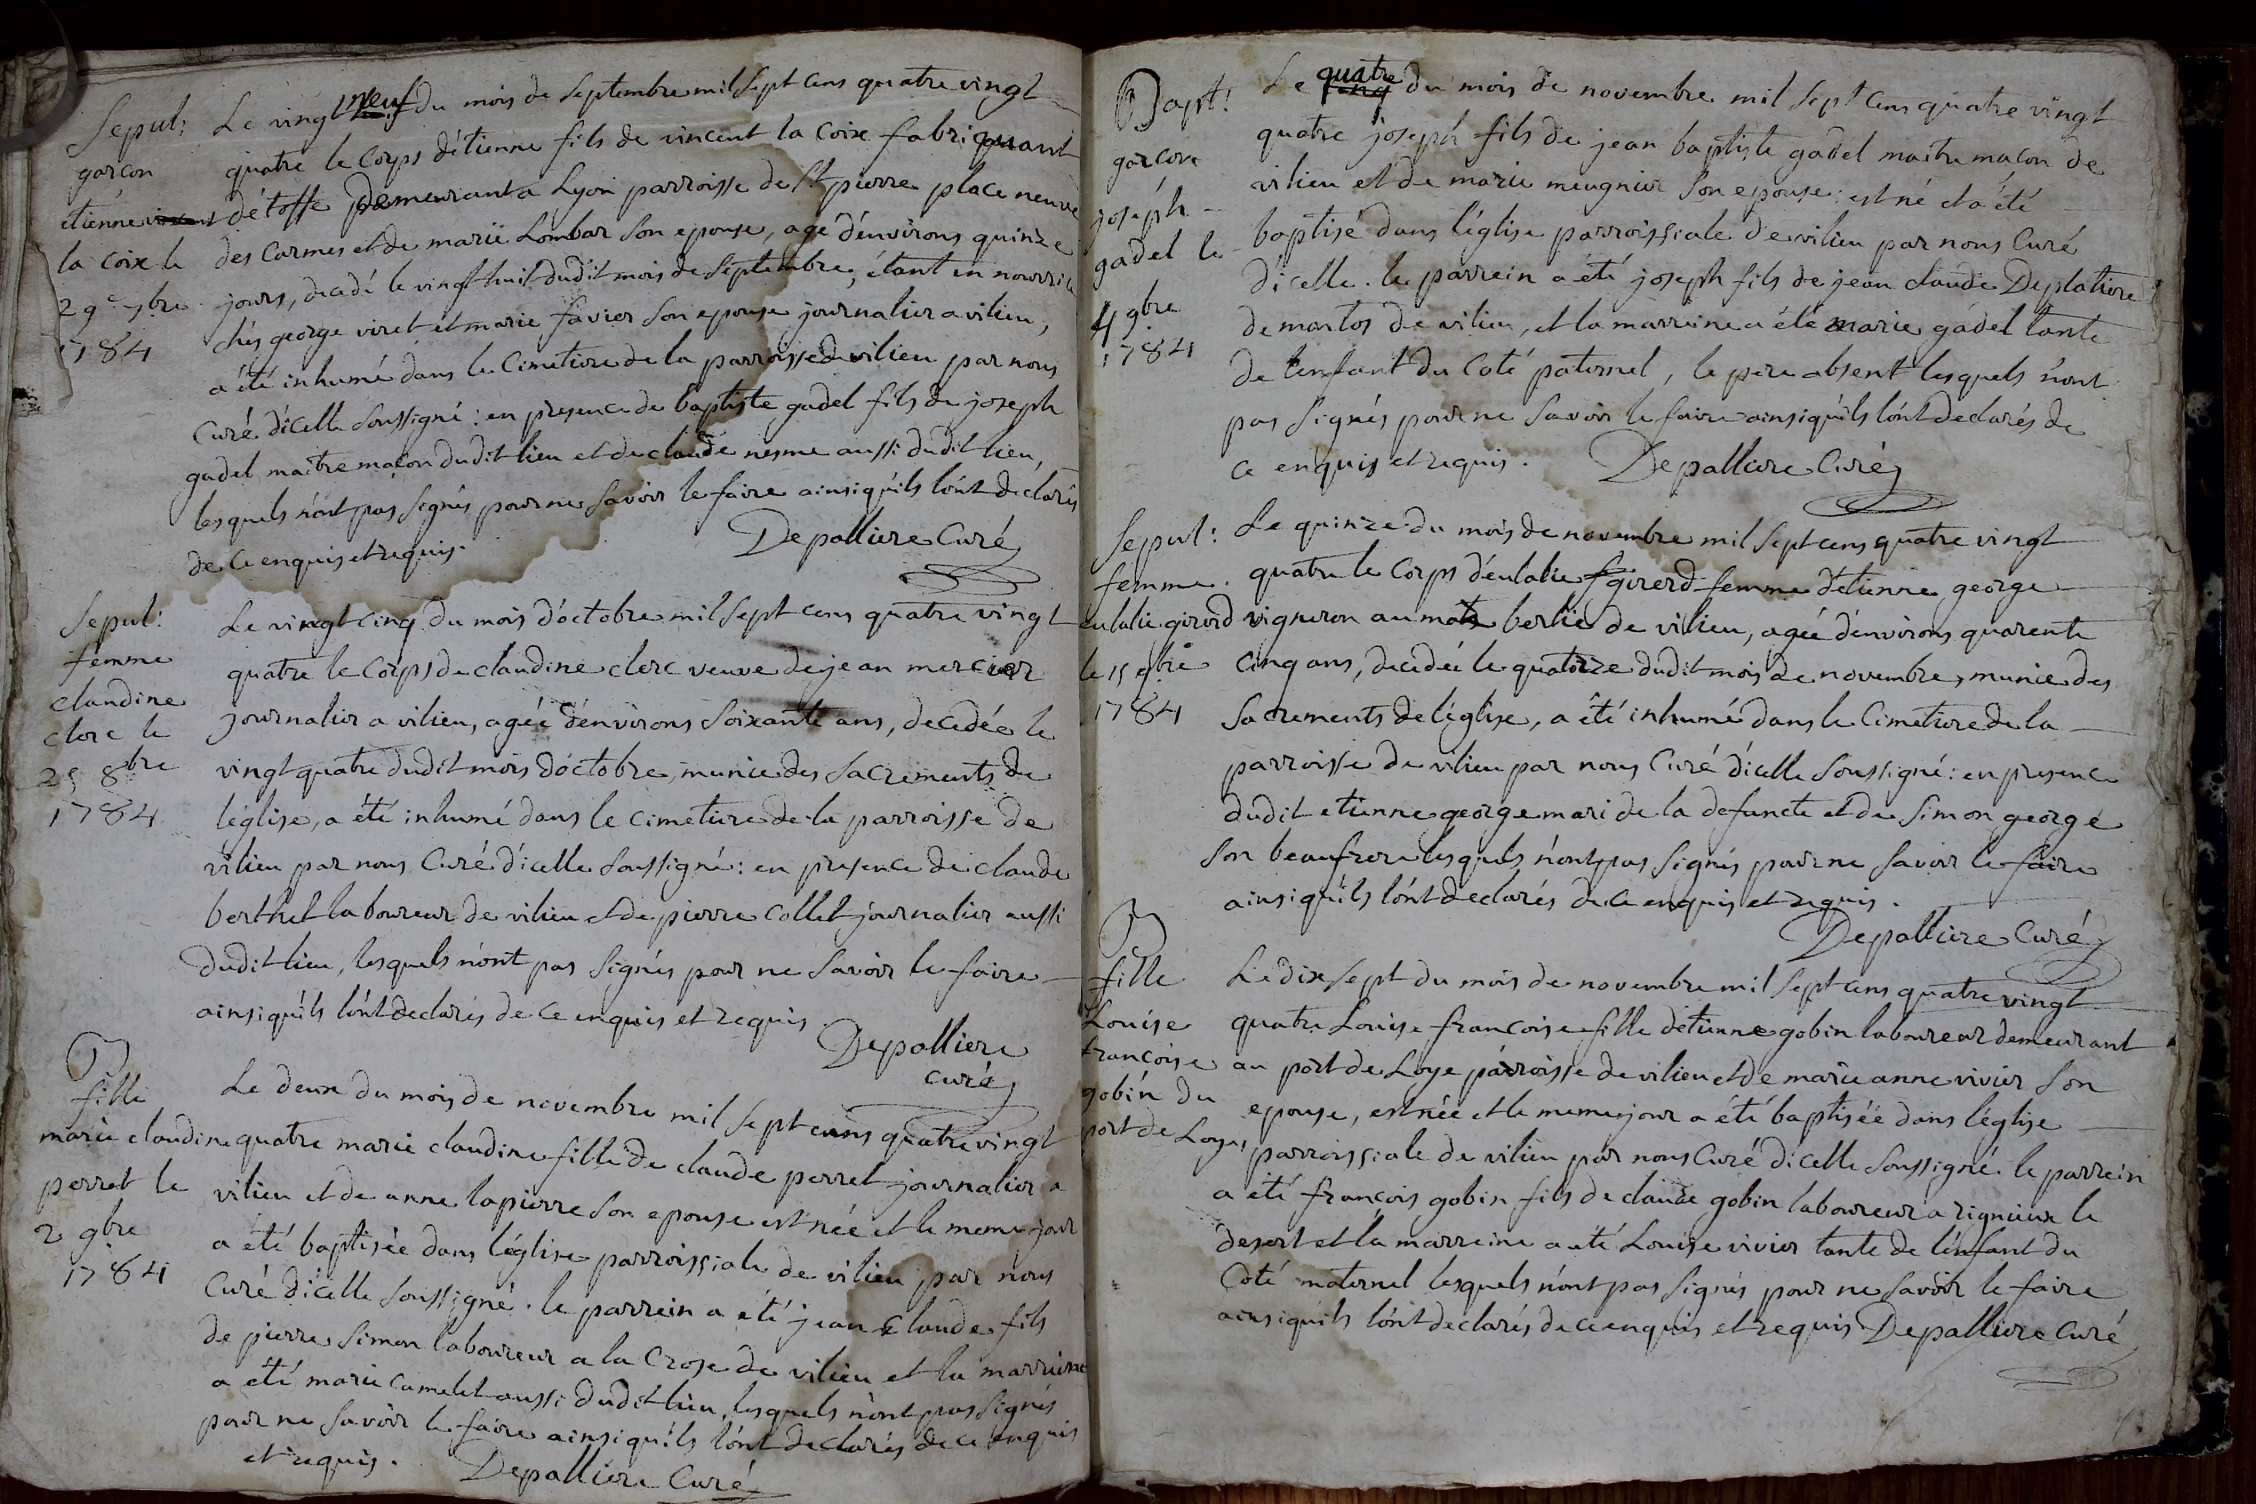 Sepul:
garçon
etienne
la coix le
29e 7bre
1784
Le vingt neuf du mois de septembre mil sept cens quatre vingt
quatre le corps d'étienne fils de vincent la coix fabriquant
d'étoffe demeurant a Lyon parroisse de St pierre place neuve
des Carmes et de marie Lombar son epouse, agé d'environs quinze
jours, decedé le vingt huit dudit mois de septembre, étant en nourrice
chés george viret et marie favier son epouse journalier a vilieu,
a été inhumé dans le Cimetiere de la parroisse de vilieu par nous
Curé d'icelle soussigné : en presence de baptiste gadel fils de joseph
gadel maitre maçon dudit lieu et de claude nesme aussi dudit lieu,
lesquels n'ont pas signés pour ne savoir le faire ainsi qu'ils l'ont declarés
de ce enquis et requis.
Depalliere Curé
Sepul:
femme
claudine
clerc le
25 8bre
1784
Le vingt cinq du mois d'octobre mil sept cens quatre vingt
quatre le Corps de claudine clerc veuve de jean mercier
journalier a vilieu, agée d'environs soixante ans, decedée le
vingt quatre dudit mois d'octobre, munie des sacrements de
l'église, a été inhumé dans le cimetiere de la parroisse de
vilieu par nous Curé d'icelle soussigné : en presence de claude
berthet laboureur de vilieu et de pierre collet journalier aussi
dudit lieu, lesquels n'ont pas signés pour ne savoir le faire
ainsi qu'ils l'ont declarés de ce enquis et requis
Depalliere
curé
B
fille
marie claudine
perret le
2 9bre
1784
Le deux du mois de novembre mil sept cens quatre vingt
quatre marie claudine fille de claude perret journalier a
vilieu et de anne lapierre son epouse est née et le meme jour
a été baptisée dans l'église parroissiale de vilieu par nous
Curé d'icelle soussigné. le parrein a été jean claude fils
de pierre simon laboureur a la Crose de vilieu et la marreine
a été marie camelet aussi dudit lieu, lesquels n'ont pas signés
pour ne savoir le faire ainsi qu'ils l'ont declarés de ce enquis
et requis. Depalliere Curé
Bapt:
garçon
joseph
gadel le
4 9bre
1784
Le quatre du mois de novembre mil sept cens quatre vingt
quatre joseph fils de jean baptiste gadel maitre maçon de
vilieu et de marie meugnier son epouse : est né et a été
baptisé dans l'église parroissiale de vilieu par nous Curé
d'icelle. le parrein a été joseph fils de jean claude Deplatiere
de martos de vilieu, et la marreine a été marie gadel tante
de l'enfant du Coté paternel, le pere absent lesquels n'ont
pas signés pour ne savoir le faire ainsi qu'ils l'ont declarés de
ce enquis et requis. Depalliere Curé
Sepul:
femme.
eulalie girerd
le 15 9bre
1784
Le quinze du mois de novembre mil sept cens quatre vingt
quatre le Corps d'eulalie girerd femme d'etienne george
vigneron au mas berlie de vilieu, agée d'environs quarente
cinq ans, decedée le quatorze dudit mois de novembre, munie des
sacrements de l'église, a été inhumé dans le Cimetiere de la
parroisse de vilieu par nous Curé d'icelle soussigné : en presence
dudit etienne george mari de la defuncte et de simon george
son beaufrere lesquels n'ont pas signés pour ne savoir le faire
ainsi qu'ils l'ont declarés de ce enquis et requis.
Depalliere Curé
B
fille
Louise
francoise
gobin du
port de Loye,
Le dix sept du mois de novembre mil sept cens quatre vingt
quatre Louise francoise fille d'etienne gobin laboureur demeurant
au port de Loye parroisse de vilieu et de marie anne vivier son
epouse, est née et le meme jour a été baptisée dans l'église
parroissiale de vilieu par nous Curé d'icelle soussigné. le parrein
a été francois gobin fils de claude gobin laboureur a rignieux le
desert et la marreine a été Louise vivier tante de l'enfant du
Coté maternel lesquels n'ont pas signés pour ne savoir le faire
ainsi quils l'ont declarés de ce enquis et requis Depalliere Curé